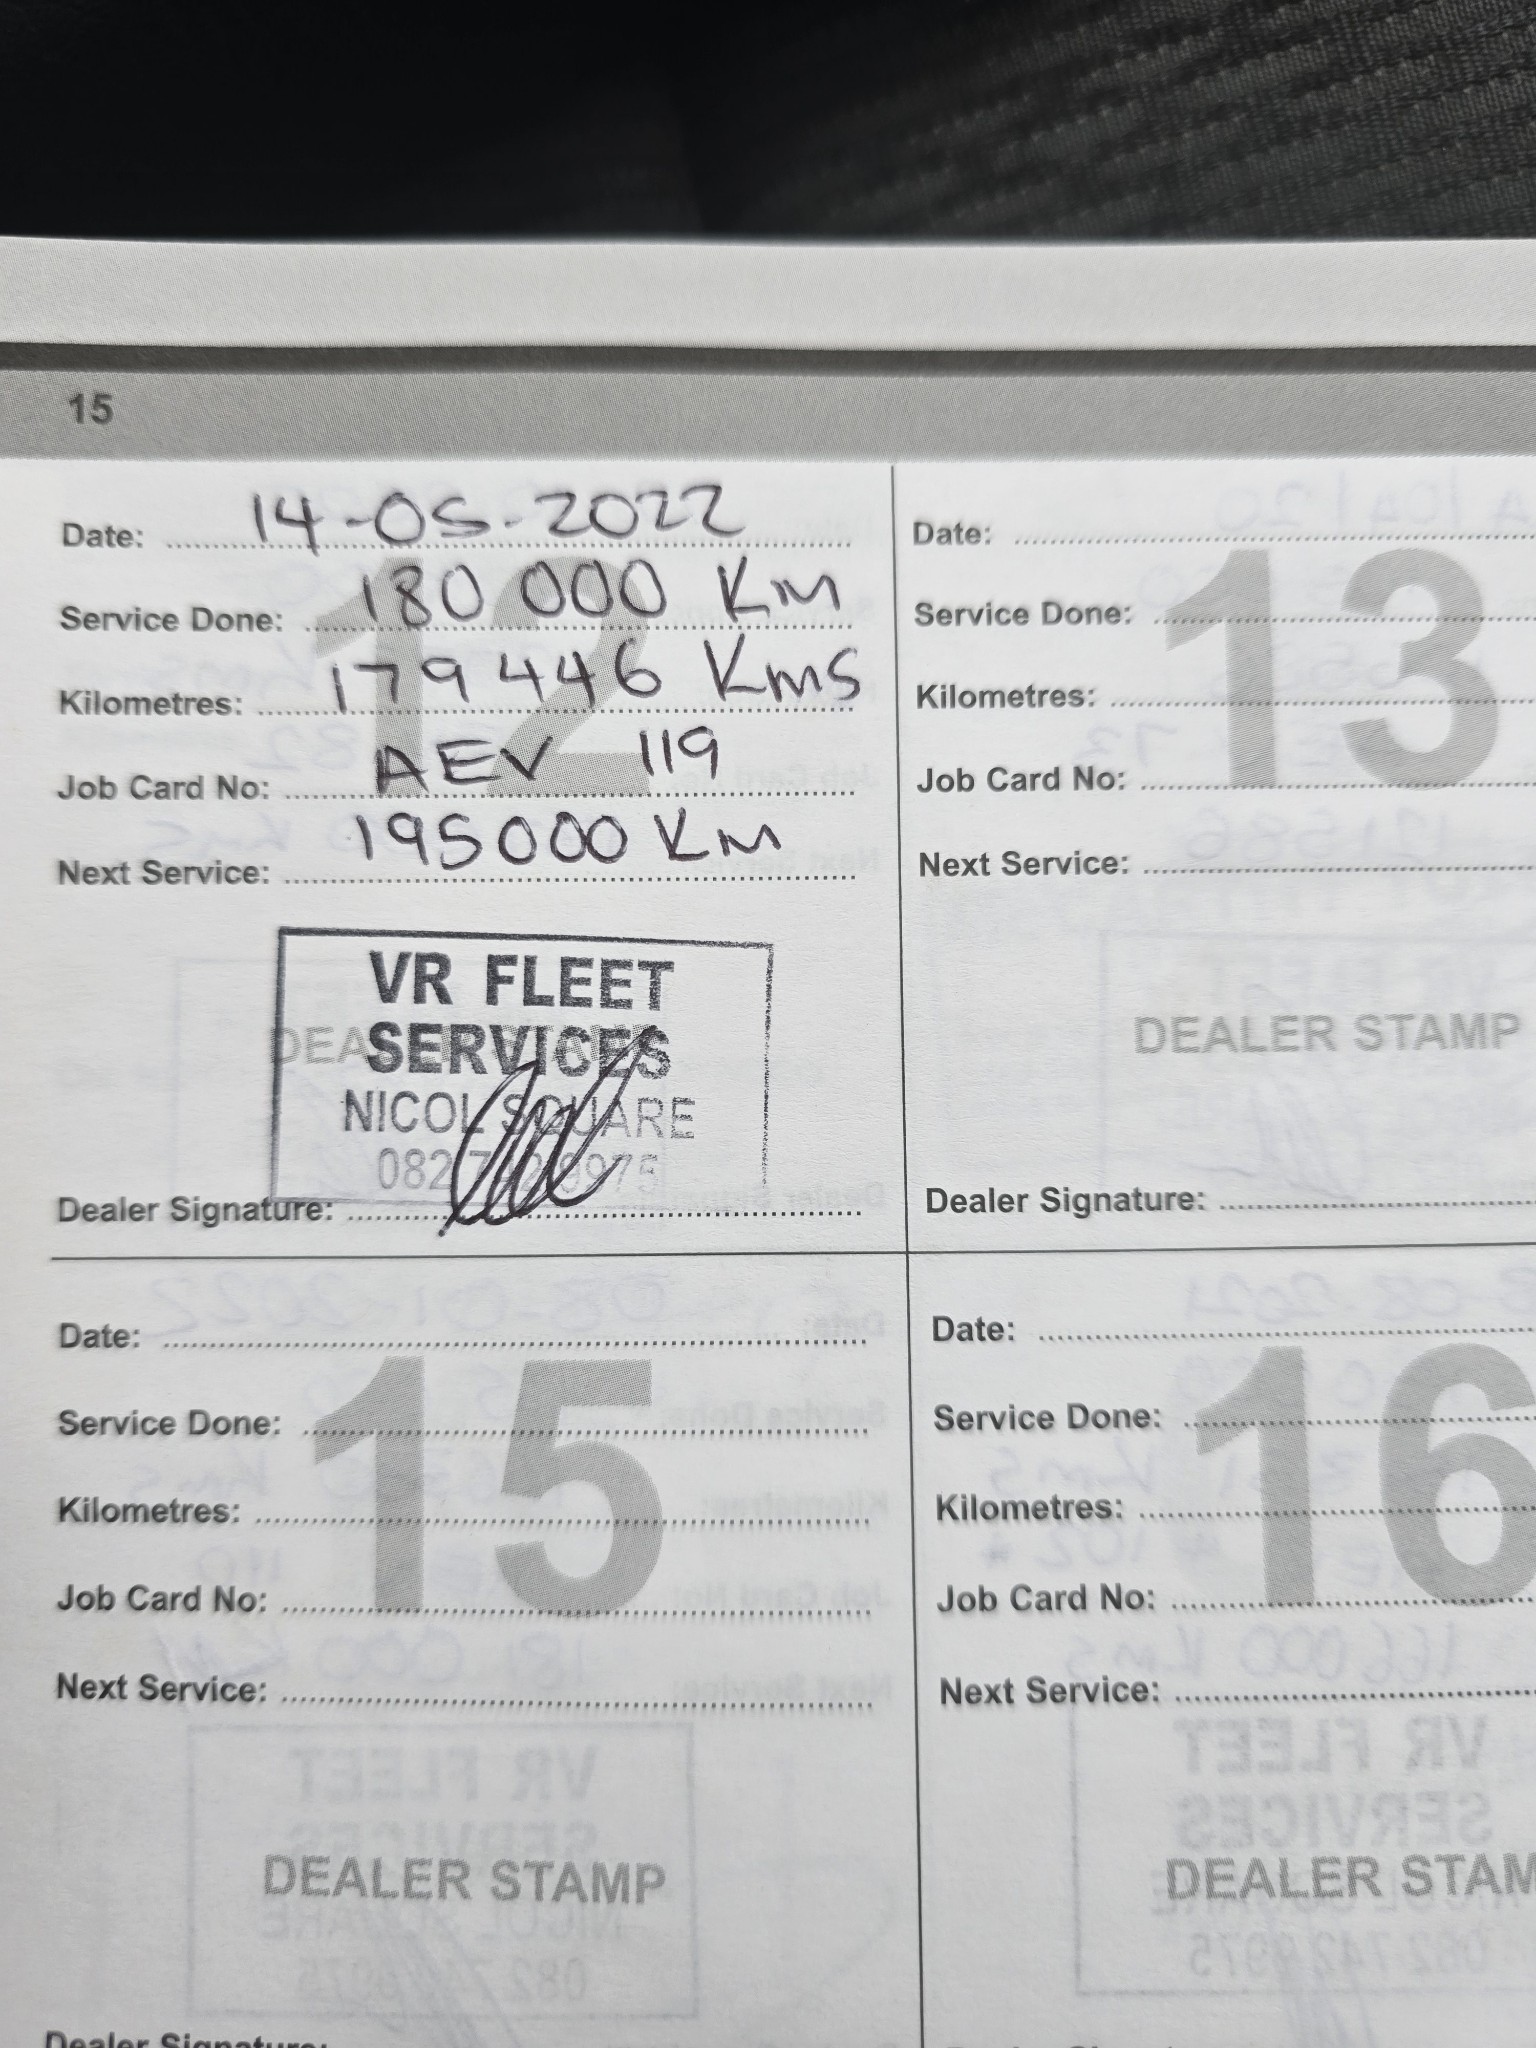 15
Date: 14-05-2022
Service Done: 180 000 Km
Kilometres: 179 446 Kms
Job Card No: AEV 119
Next Service: 195000 Km
12
VR FLEET
SERVICES
NICOL SQUARE
082 742 9975
Dealer Signature:
Date:
Service Done:
Kilometres:
Job Card No:
Next Service:
13
DEALER STAMP
Dealer Signature:
Date:
Service Done:
Kilometres:
Job Card No:
Next Service:
15
DEALER STAMP
Dealer Signature:
Date:
Service Done:
Kilometres:
Job Card No:
Next Service:
16
DEALER STAM